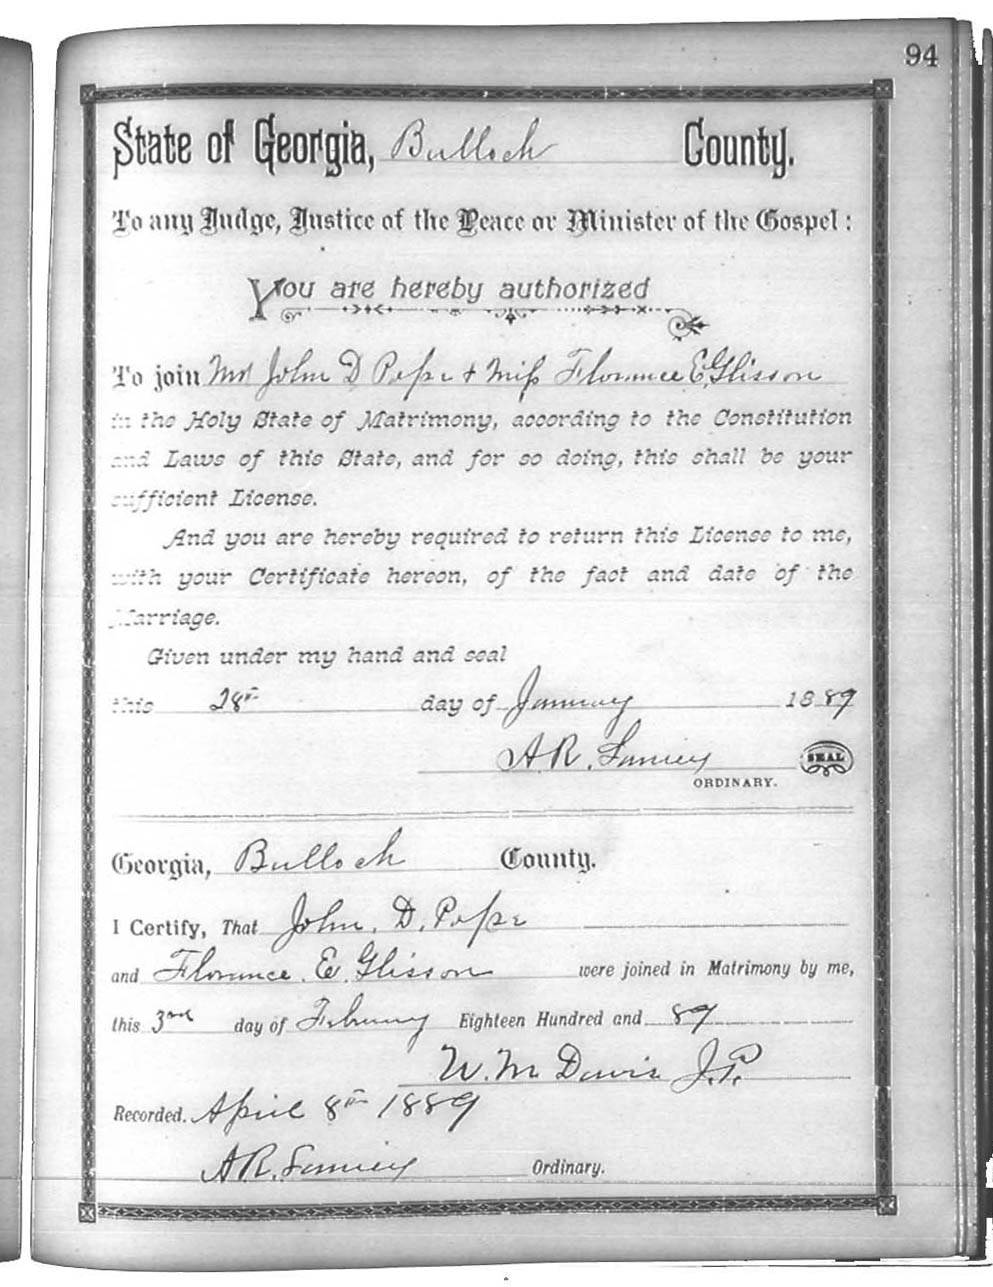 94
State of Georgia, Bulloch County.
To any Judge, Justice of the Peace or Minister of the Gospel:
You are hereby authorized
To join Mr John D Pope & Miss Florence E. Glisson
in the Holy State of Matrimony, according to the Constitution
and Laws of this State, and for so doing, this shall be your
sufficient License.
And you are hereby required to return this License to me,
with your Certificate hereon, of the fact and date of the
Marriage.
Given under my hand and seal
this 28th day of January 1889
A.R. Lanier SEAL
ORDINARY.
Georgia, Bulloch County.
I Certify, That John. D. Pope
and Florence. E. Glisson were joined in Matrimony by me,
this 3rd day of February Eighteen Hundred and 89
W. M Davis J.P.
Recorded. April 8th 1889
A.R. Lanier Ordinary.